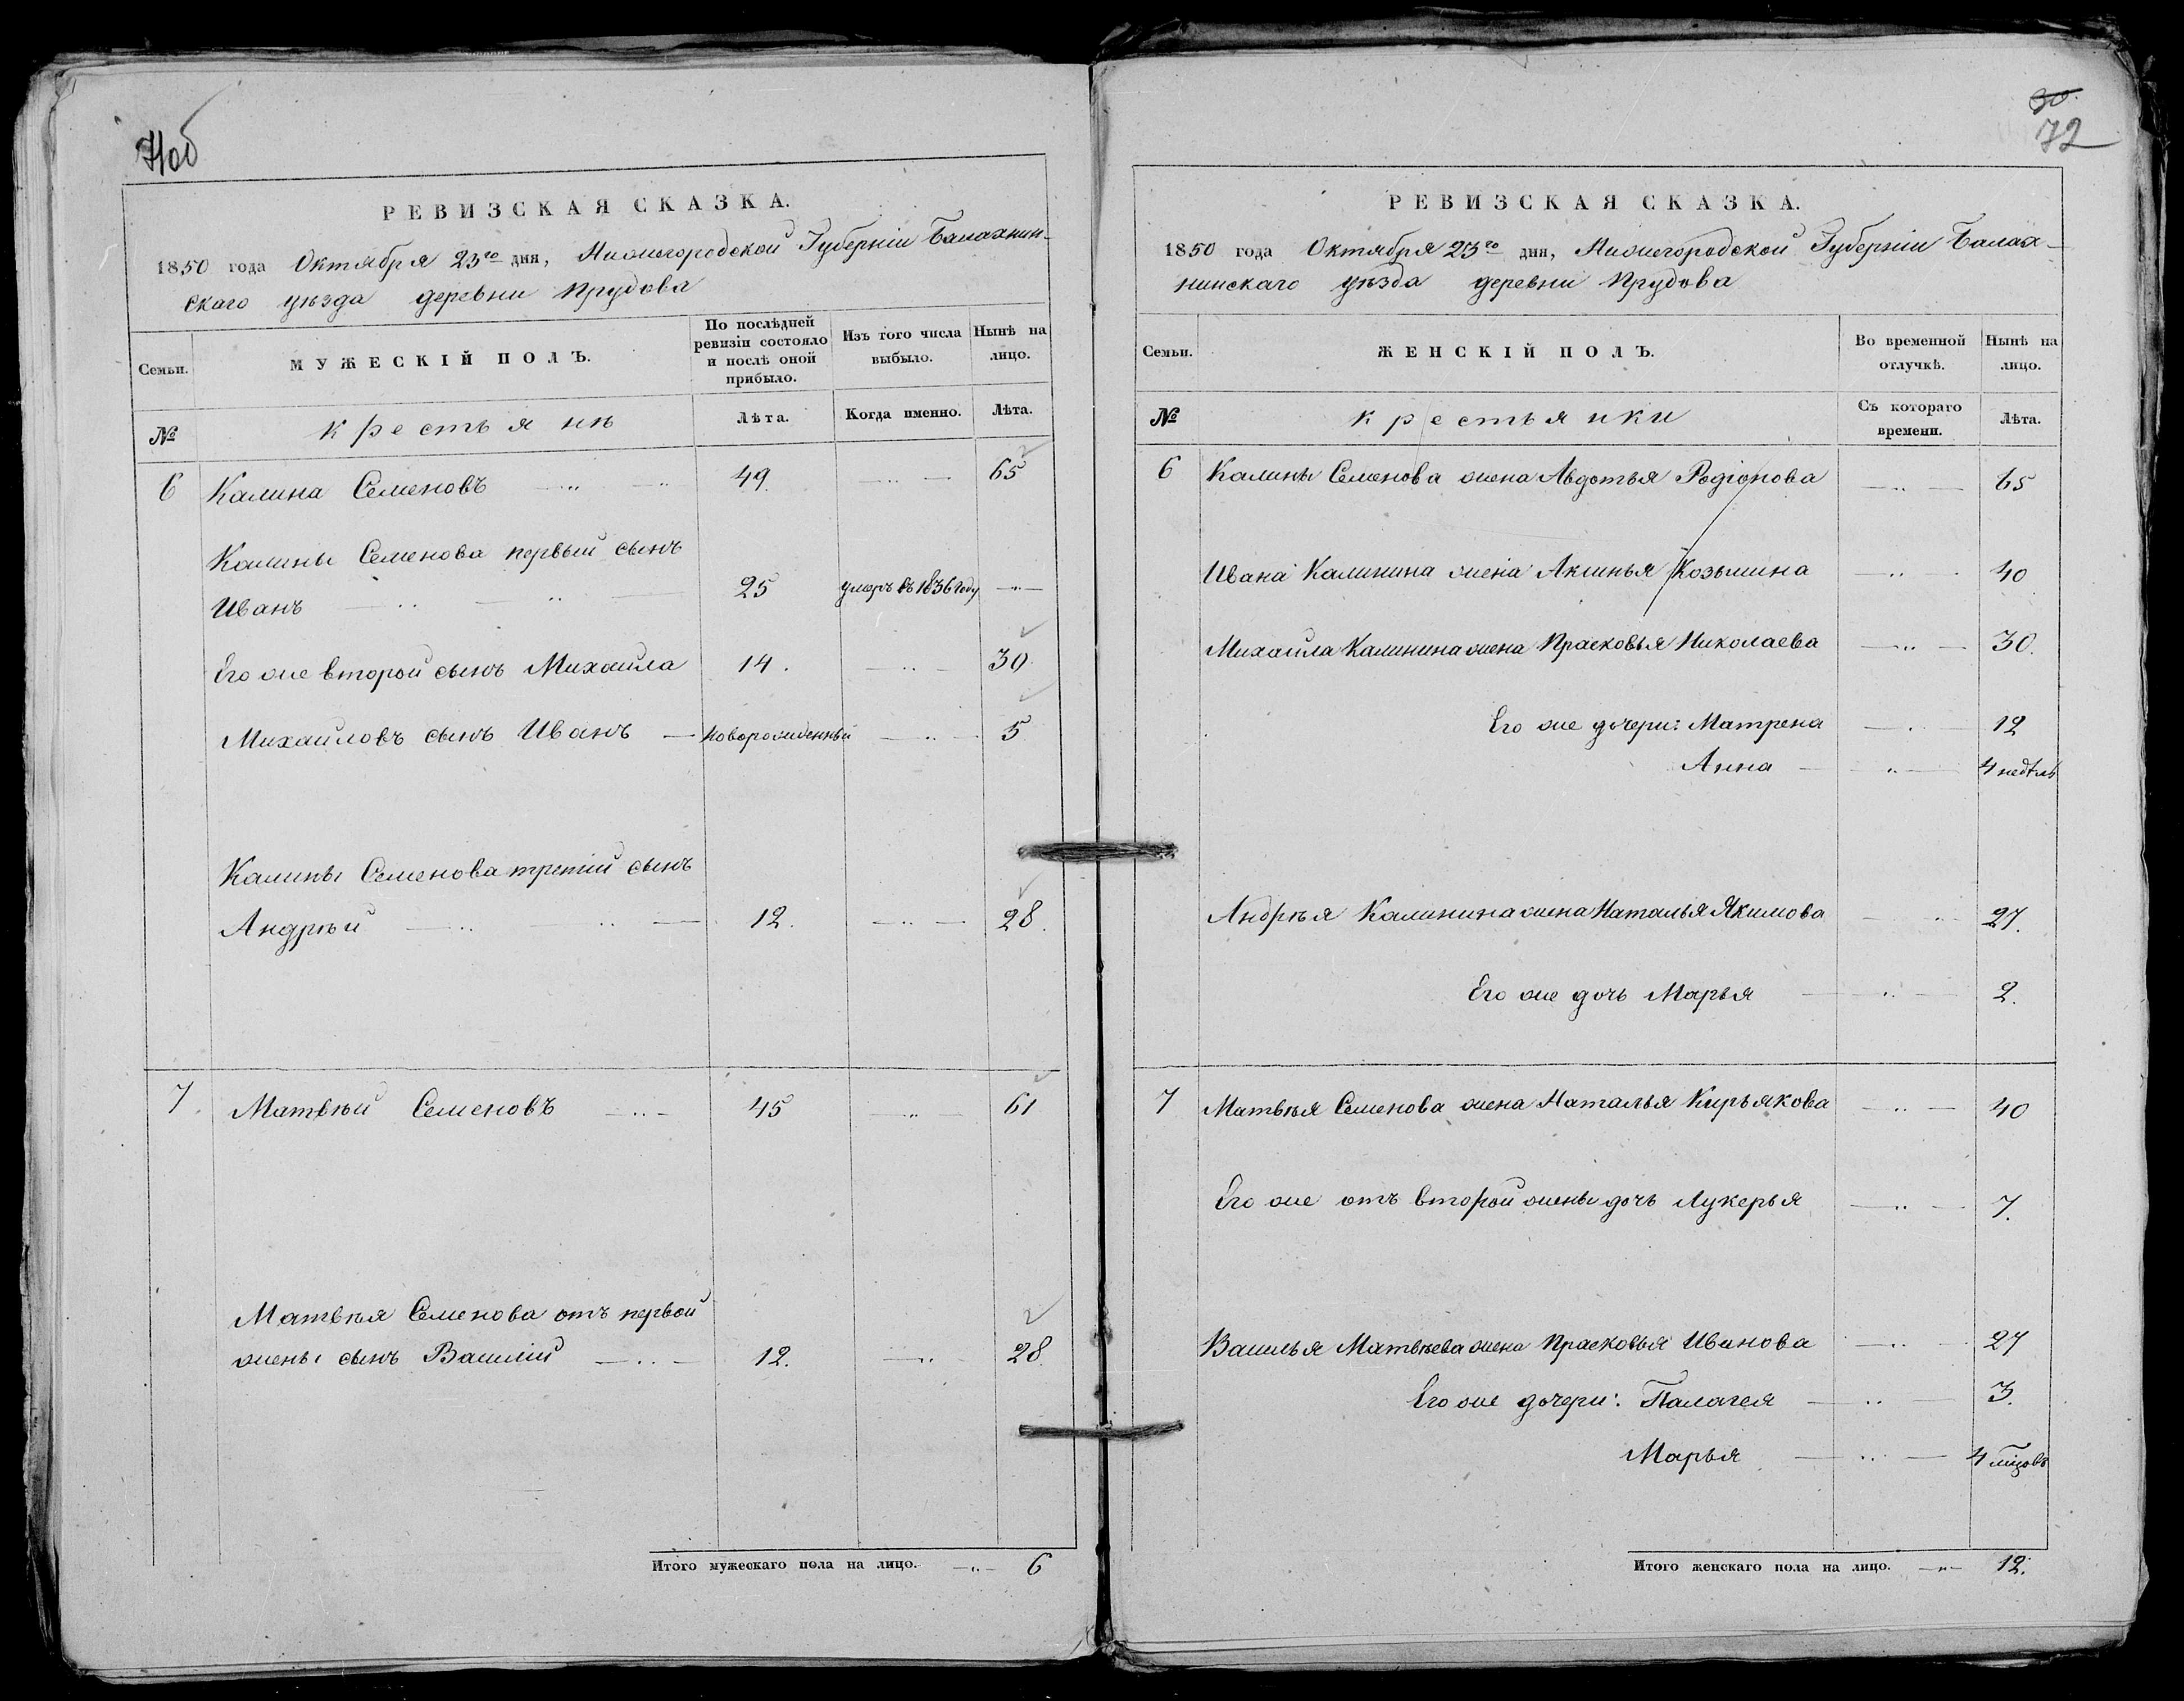 71об
РЕВИЗСКАЯ СКАЗКА.
1850 года Октября 23го дня, Нижегородской Губерніи Балахнин-
скаго уѣзда деревни Прудова
Семьи.
МУЖЕСКІЙ ПОЛЪ.
По послѣдней ревизіи состояло и послѣ оной прибыло.
Изъ того числа выбыло.
Нынѣ на лицо.
№
крестьянѣ
Лѣта.
Когда именно.
Лѣта.
6 Калина Семеновъ 49. 65
Калины Семенова первый сынъ
Иванъ 25 умеръ въ 1836 году
Его же второй сынъ Михаила 14. 30
Михайловъ сынъ Иванъ новорожденный 5
Калины Семенова третій сынъ
Андрѣй 12. 28.
7. Матвѣй Семеновъ 45 61
Матвѣя Семенова отъ первой
жены сынъ Василій 12. 28.
Итого мужескаго пола на лицо. 6
30.
72
РЕВИЗСКАЯ СКАЗКА.
1850 года Октября 23го дня, Нижегородской Губерніи Балах-
нинскаго уѣзда деревни Прудова
Семьи.
ЖЕНСКІЙ ПОЛЪ.
Во временной отлучкѣ.
Нынѣ на лицо.
№
крестьянки
Съ котораго времени.
Лѣта.
6 Калины Семенова жена Авдотья Родіонова 65
Ивана Калинина жена Аксинья Козьмина 40
Михаила Калинина жена Прасковья Николаева 30.
Его же дочери: Матрена 12
Анна 4 недѣль
Андрѣя Калинина жена Наталья Якимова 27.
Его же дочь Марья 2.
7 Матвѣя Семенова жена Наталья Кирьякова 40
Его же отъ второй жены дочь Лукерья 7.
Василья Матвѣева жена Прасковья Иванова 27
Его же дочери: Палагея 3.
Марья 4 мѣсцовъ
Итого женскаго пола на лицо. 12.